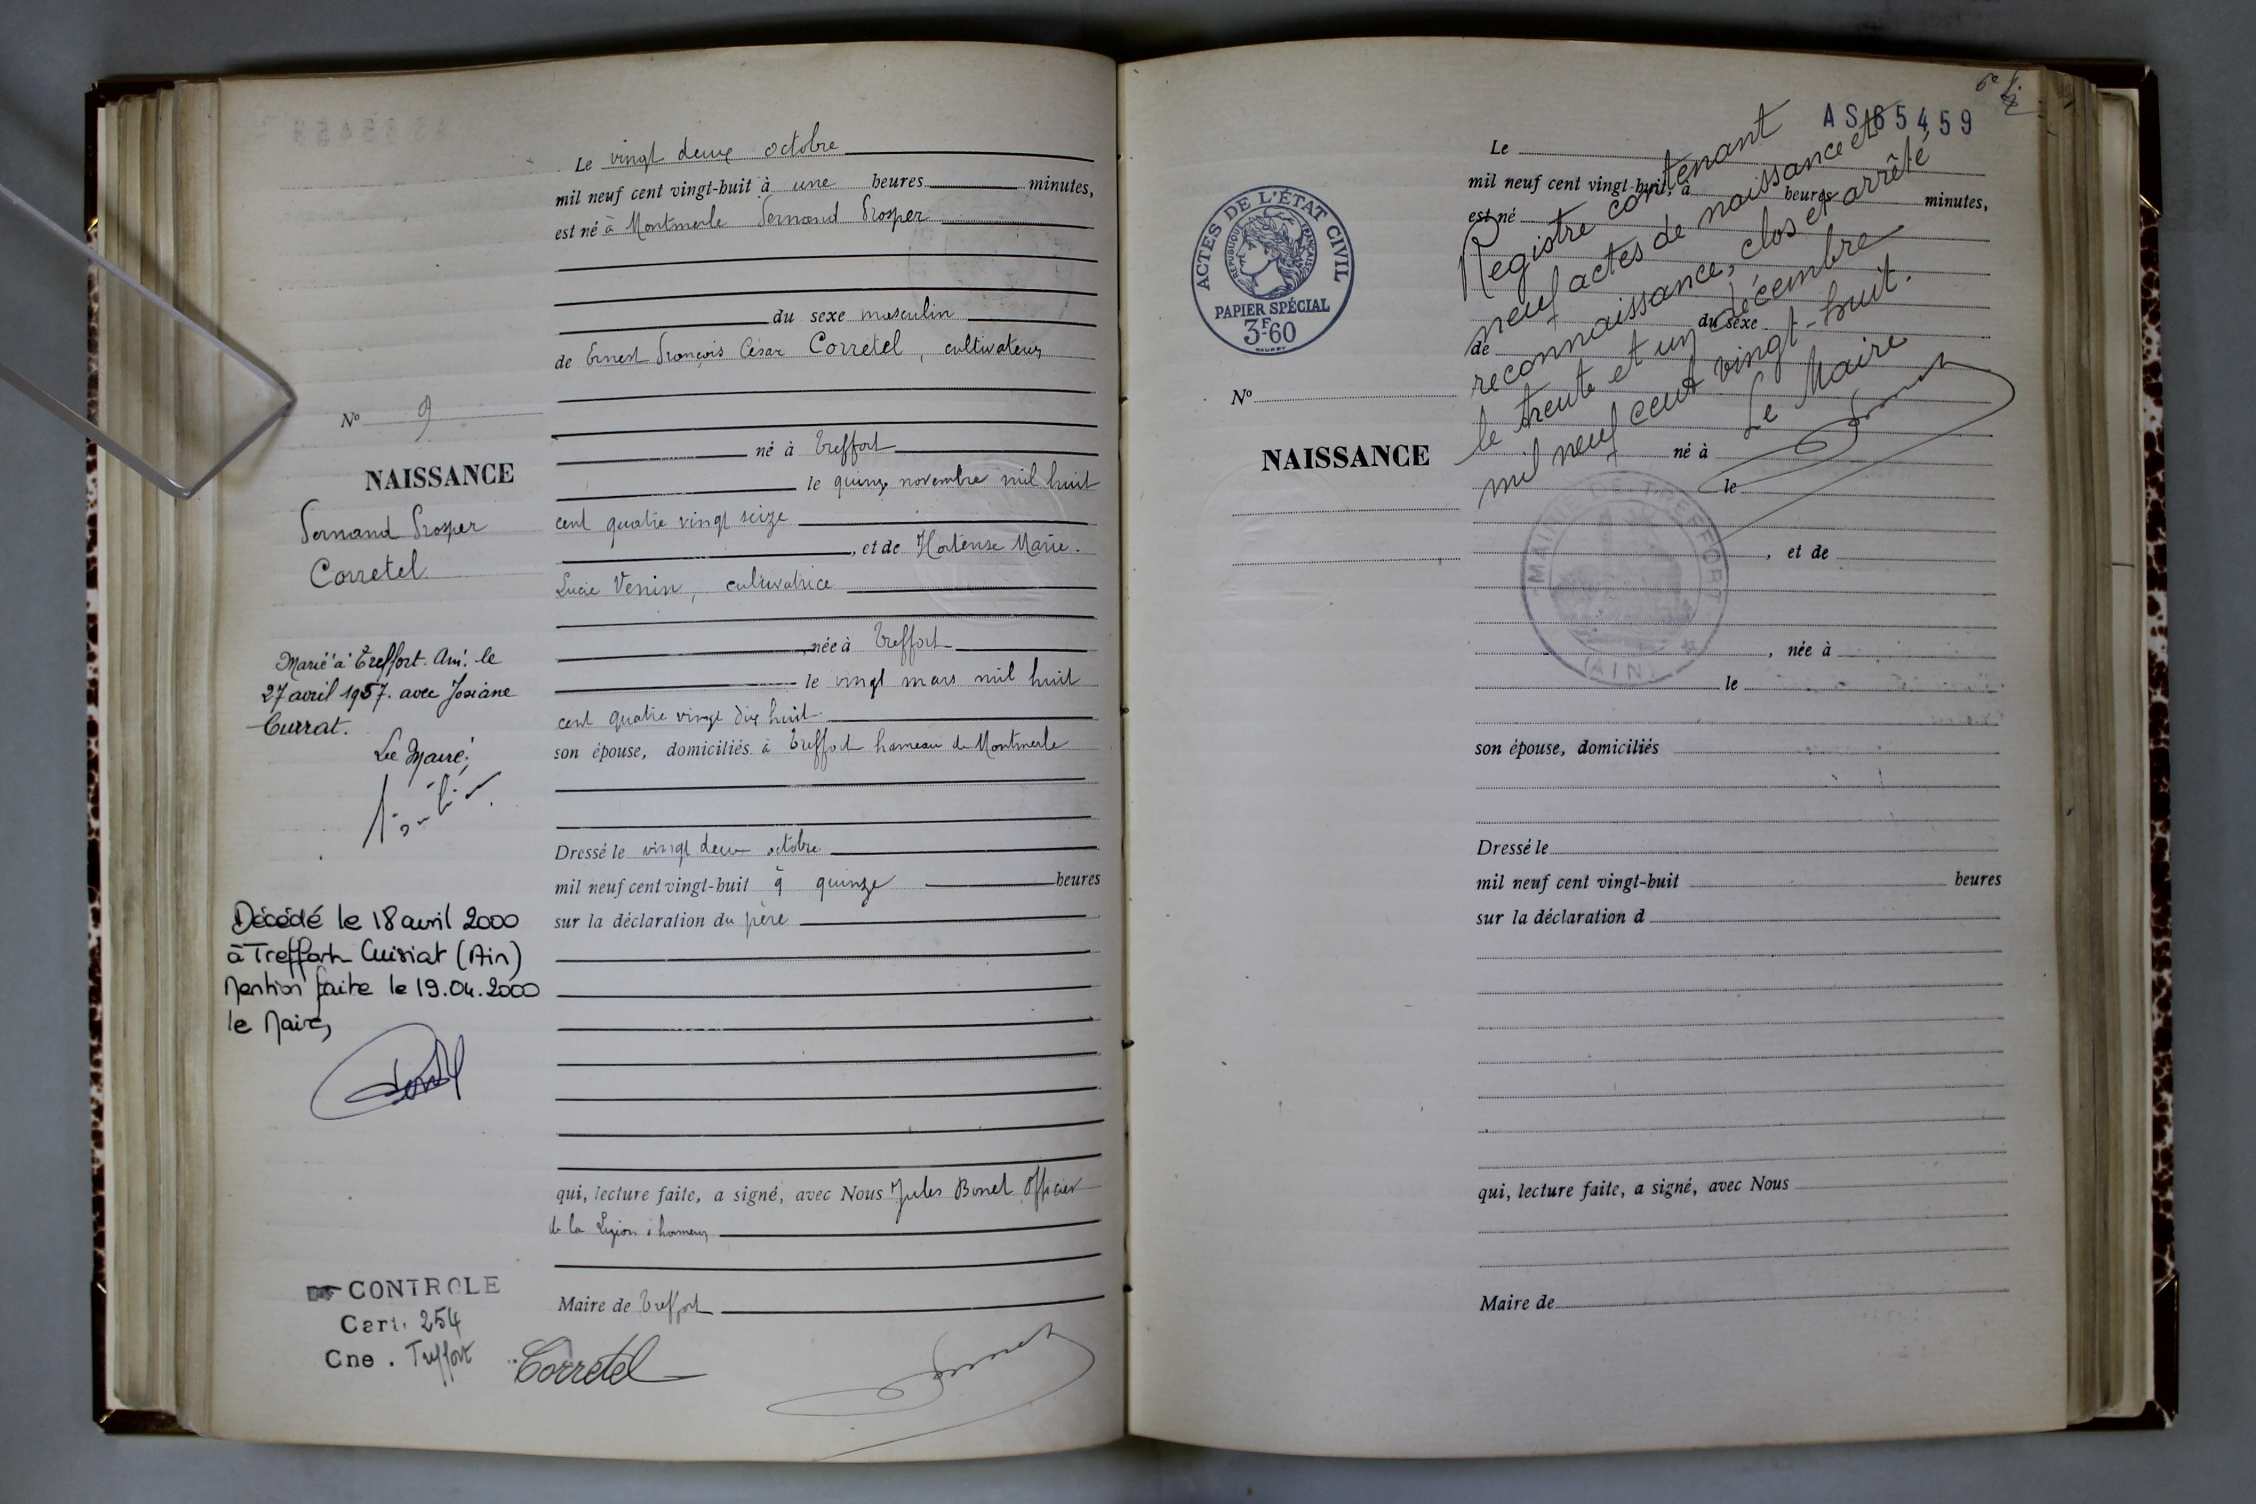 N° 9
NAISSANCE
Fernand Prosper
Corretel
Marié à Treffort. Ain. le
27 avril 1957. avec Josiane
Currat.
Le Maire,
Décédé le 18 avril 2000
à Treffort Cuisiat (Ain)
Mention faite le 19.04.2000
le Maire,
CONTROLE
Cart. 254
Cne. Treffort
Le vingt deux octobre
mil neuf cent vingt-huit à une heures minutes,
est né à Montmerle Fernand Prosper
du sexe masculin
de Ernest François César Corretel, cultivateur
né à Treffort
le quinze novembre mil huit
cent quatre vingt seize
, et de Hortense Marie.
Lucie Venin, cultivatrice
, née à Treffort
le vingt mars mil huit
cent quatre vingt dix huit
son épouse, domiciliés à Treffort hameau de Montmerle
Dressé le vingt deux octobre
mil neuf cent vingt-huit à quinze heures
sur la déclaration du père
qui, lecture faite, a signé, avec Nous Jules Bonet Officier
de la Légion d'honneur
Maire de Treffort
Corretel
AS 65459
ACTES DE L'ÉTAT CIVIL
RÉPUBLIQUE FRANÇAISE
PAPIER SPÉCIAL
3F.60
N°
NAISSANCE
Le
mil neuf cent vingt-huit, à heures minutes,
est né
du sexe
de
né à
le
, et de
, née à
le
son épouse, domiciliés
Dressé le
mil neuf cent vingt-huit heures
sur la déclaration d
qui, lecture faite, a signé, avec Nous
Maire de
Registre contenant
neuf actes de naissance et
reconnaissance, clos et arrêté
le trente et un décembre
mil neuf cent vingt-huit.
Le Maire
MAIRIE DE TREFFORT
(AIN)